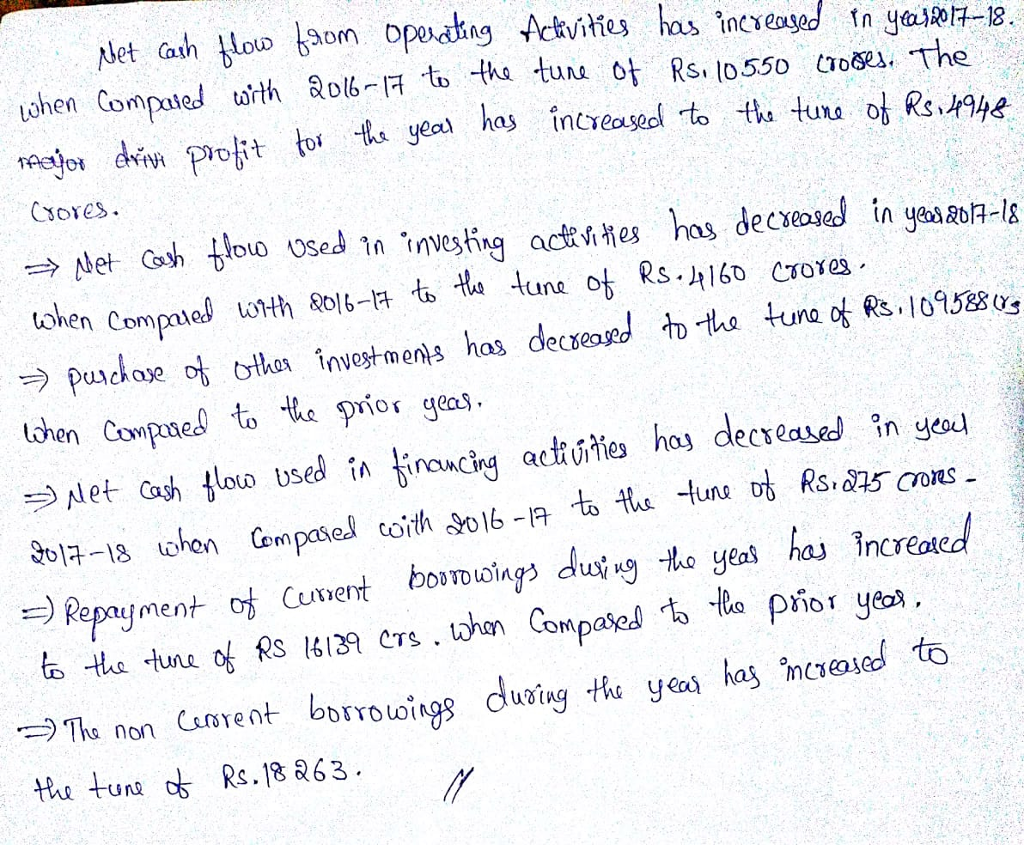 Net cash flow from operating Activities has increased in year2017-18.
when Compared with 2016-17 to the tune of Rs.10550 crores. The
major driver profit for the year has increased to the tune of Rs.4948
Crores.
⇒ Net Cash flow used in investing activities has decreased in year2017-18
when Compared with 2016-17 to the tune of RS.4160 crores.
⇒ purchase of other investments has decreased to the tune of Rs.109588 crs
when Compared to the prior year.
⇒ Net Cash flow used in financing activities has decreased in year
2017-18 when Compared with 2016-17 to the tune of RS.275 crores-
⇒ Repayment of Current borrowings during the year has increased
to the tune of RS 16139 crs. when Compared to the prior year.
⇒ The non Current borrowings during the year has increased to
the tune of Rs.18263. //